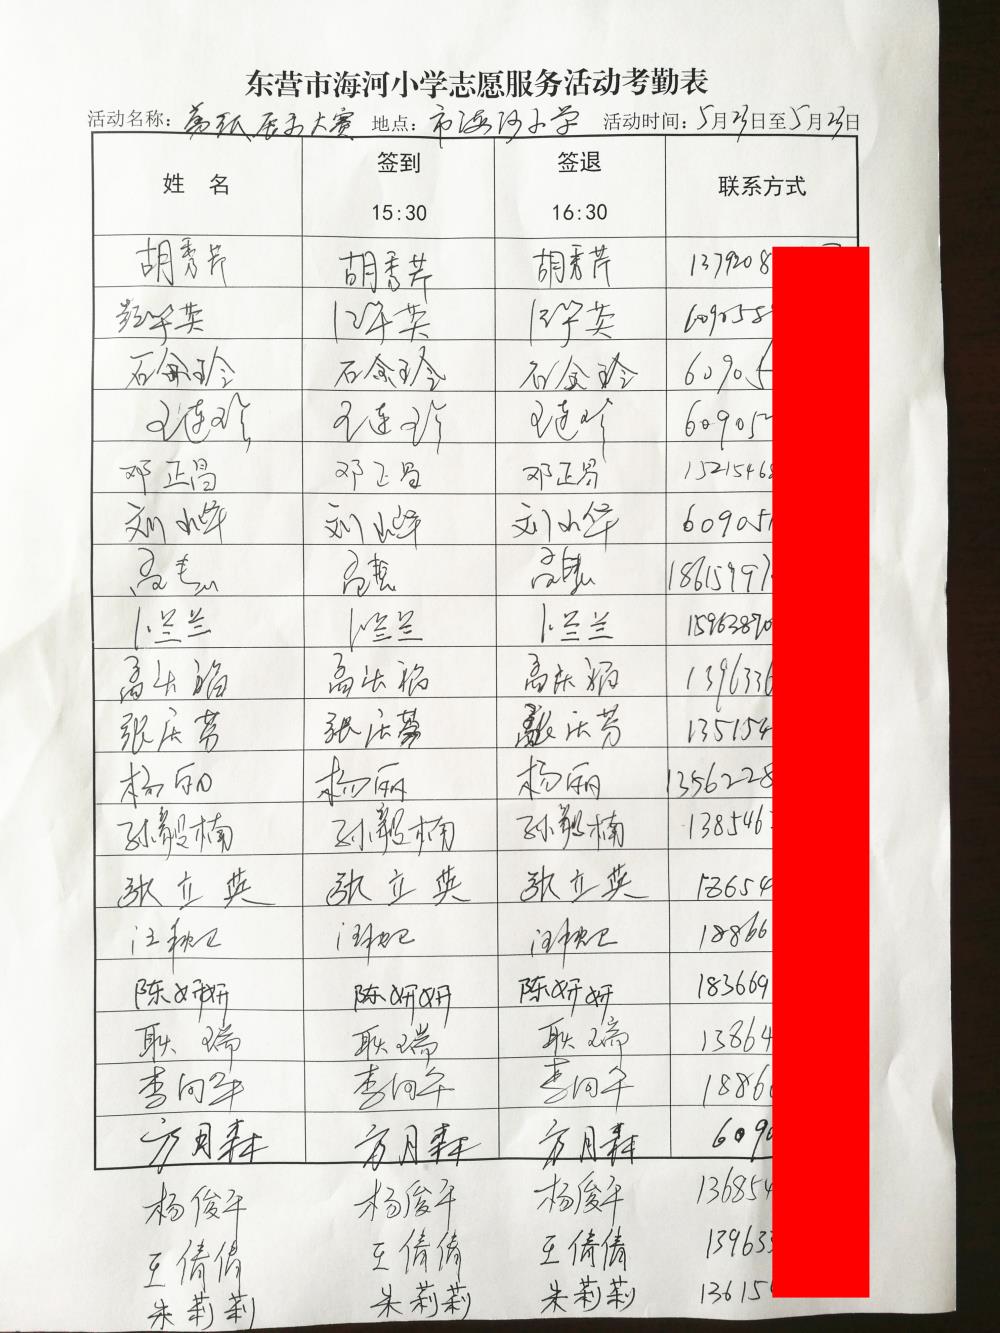 东营市海河小学志愿服务活动考勤表
活动名称: 剪纸展示大赛 地点: 市海河小学 活动时间: 5月23日至5月23日
姓 名 签到 15:30 签退 16:30 联系方式
胡秀芹 胡秀芹 胡秀芹 1379208
华英 江华英 江华英 609058
石金玲 石金玲 石金玲 60905
王连珍 王连珍 王连珍 60905
邓正昌 邓正昌 邓正昌 15215468
刘小华 刘小华 刘小华 60905
高惠 高惠 高惠 18615997
卜兰兰 卜兰兰 卜兰兰 15963870
高庆福 高庆福 高庆福 1396336
张庆芳 张庆芳 张庆芳 135154
杨丽 杨丽 杨丽 13562228
孙毅楠 孙毅楠 孙毅楠 138546
张立英 张立英 张立英 13654
汪秋卫 汪秋卫 汪秋卫 18866
陈妍妍 陈妍妍 陈妍妍 183669
耿瑞 耿瑞 耿瑞 13864
李向军 李向军 李向军 1886
方月森 方月森 方月森 6090
杨俊平 杨俊平 杨俊平 136854
王倩倩 王倩倩 王倩倩 139633
朱莉莉 朱莉莉 朱莉莉 13615